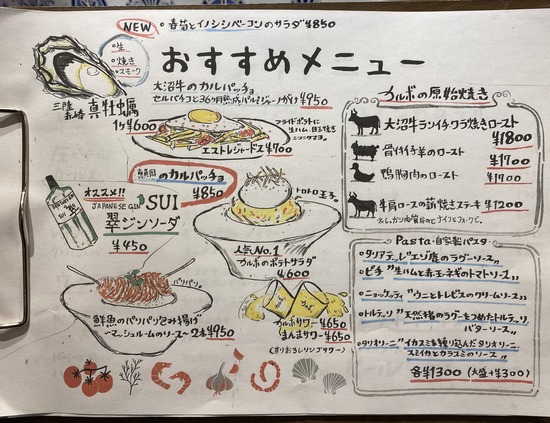 NEW
春菊とイノシシベーコンのサラダ ¥850
おすすめメニュー
生
焼き
スモーク
三陸
真牡蠣
1ケ ¥600
大沼牛のカルパッチョ
セルバチコと36ヶ月熟成パルミジャーノがけ ¥950
フライドポテトに
生ハム、目玉焼き
エストレジャードス ¥700
鮮魚のカルパッチョ
¥850
オススメ!!
JAPANESE GIN SUI
翠ジンソーダ
¥450
トロトロ玉子。
人気No.1
カルボのポテトサラダ
¥600
パリパリ。
鮮魚のパリパリ包み揚げ
〜マッシュルームのソース〜 2本 ¥950
カルボサワー ¥650
まんまサワー ¥650
(すりおろしリンゴサワー)
カルボの原始焼き
大沼牛ランイチワラ焼きロースト
¥1800
骨付仔羊のロースト
¥1700
鴨胸肉のロースト
¥1700
牛肩ロースの薪焼きステーキ ¥1200
Pasta 自家製パスタ
・タリアテッレ "エゾ鹿のラグーソース"
・ピチ "生ハムと赤玉ネギのトマトソース"
・ニョッケッティ "ウニとトレビスのクリームソース"
・トルテッリ "天然猪のラグーをつめたトルテッリ
バターソース"
・タリオリーニ "イカスミを練り込んだタリオリーニ
スミイカとカラスミのソース"
各¥1300 (大盛+¥300)